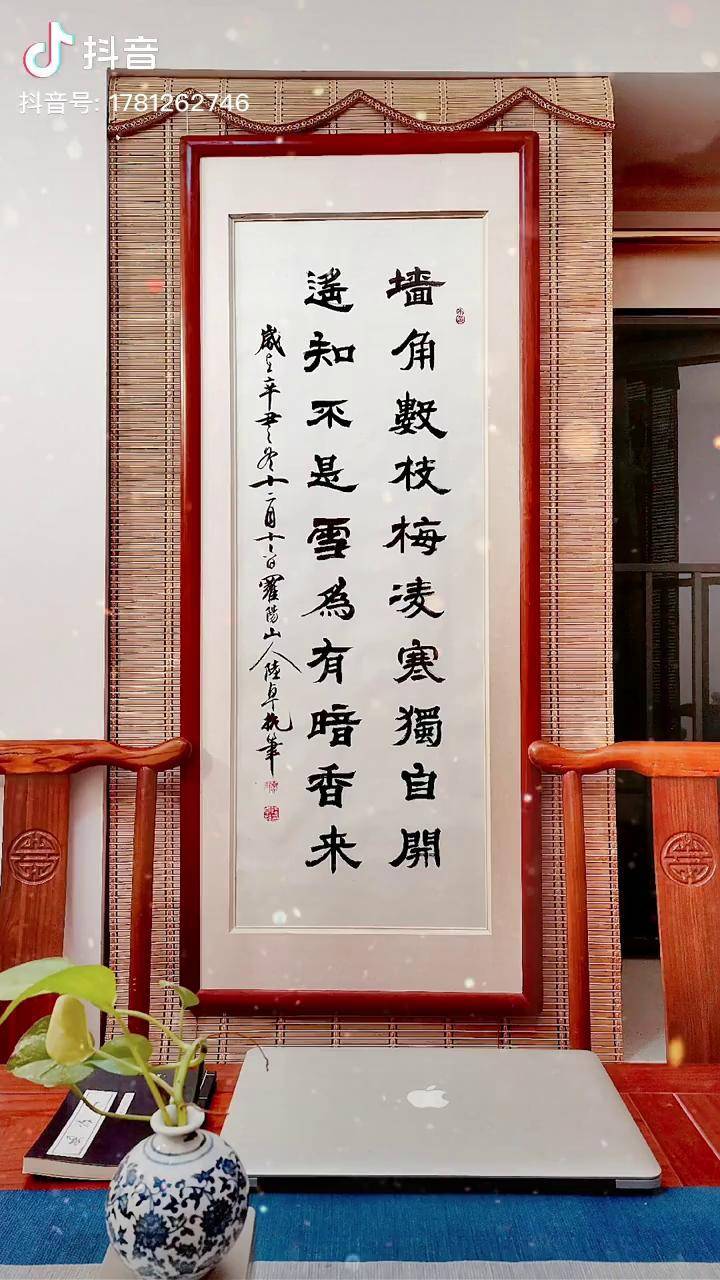 抖音
抖音号: 1781262746
墙角數枝梅凌寒獨自開
遙知不是雪為有暗香来
歲在辛丑冬十二月十二日羅陽山人陸卓執筆